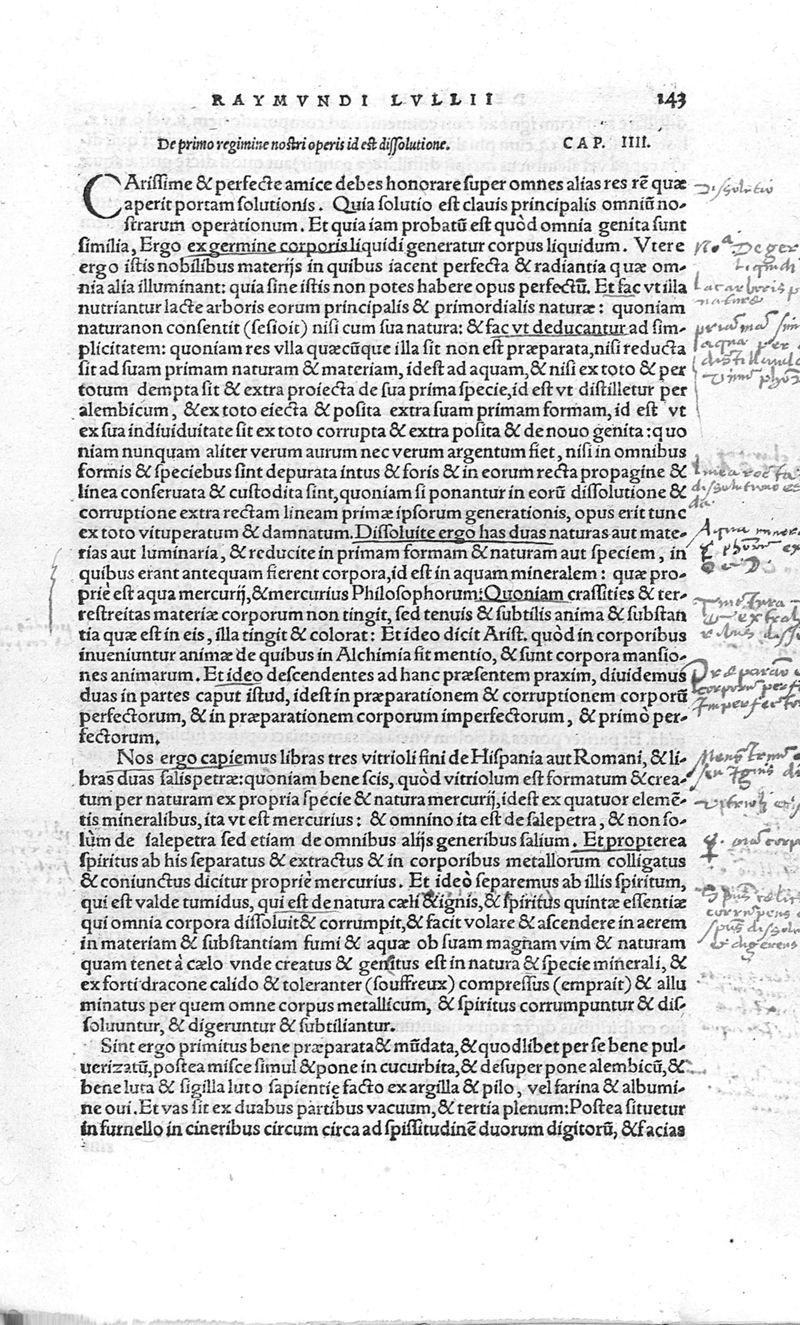 RAYMVNDI LVLLII 143
De primo regimine nostri operis id est dissolutione. CAP. IIII.
CArissime & perfecte amice debes honorare super omnes alias res rē quæ
aperit portam solutionis. Quia solutio est clauis principalis omniū no-
strarum operationum. Et quia iam probatū est quòd omnia genita sunt
similia, Ergo ex germine corporis liquidi generatur corpus liquidum. Vtere
ergo istis nobilibus materijs in quibus iacent perfecta & radiantia quæ om-
nia alia illuminant: quia sine istis non potes habere opus perfectū. Et fac vt illa
nutriantur lacte arboris eorum principalis & primordialis naturæ: quoniam
natura non consentit (sesioit) nisi cum sua natura: & fac vt deducantur ad sim-
plicitatem: quoniam res vlla quæcūque illa sit non est præparata, nisi reducta
sit ad suam primam naturam & materiam, id est ad aquam, & nisi ex toto & per
totum dempta sit & extra proiecta de sua prima specie, id est vt distilletur per
alembicum, & ex toto eiecta & posita extra suam primam formam, id est vt
ex sua indiuiduitate sit ex toto corrupta & extra posita & de nouo genita: quo
niam nunquam aliter verum aurum nec verum argentum fiet, nisi in omnibus
formis & speciebus sint depurata intus & foris & in eorum recta propagine &
linea conseruata & custodita sint, quoniam si ponantur in eorū dissolutione &
corruptione extra rectam lineam primæ ipsorum generationis, opus erit tunc
ex toto vituperatum & damnatum. Dissoluite ergo has duas naturas aut mate-
rias aut luminaria, & reducite in primam formam & naturam aut speciem, in
quibus erant antequam fierent corpora, id est in aquam mineralem: quæ pro-
priè est aqua mercurij, & mercurius Philosophorum: Quoniam crassities & ter-
restreitas materiæ corporum non tingit, sed tenuis & subtilis anima & substan
tia quæ est in eis, illa tingit & colorat: Et ideo dicit Arist. quòd in corporibus
inueniuntur animæ de quibus in Alchimia fit mentio, & sunt corpora mansio-
nes animarum. Et ideo descendentes ad hanc præsentem praxim, diuidemus
duas in partes caput istud, id est in præparationem & corruptionem corporū
perfectorum, & in præparationem corporum imperfectorum, & primò per-
fectorum.
Nos ergo capiemus libras tres vitrioli fini de Hispania aut Romani, & li-
bras duas salis petræ: quoniam bene scis, quòd vitriolum est formatum & crea-
tum per naturam ex propria specie & natura mercurij, id est ex quatuor elemē-
tis mineralibus, ita vt est mercurius: & omnino ita est de salepetra, & non so-
lùm de salepetra sed etiam de omnibus alijs generibus salium. Et propterea
spiritus ab his separatus & extractus & in corporibus metallorum colligatus
& coniunctus dicitur propriè mercurius. Et ideò separemus ab illis spiritum,
qui est valde tumidus, qui est de natura cæli & ignis, & spiritus quintæ essentiæ
qui omnia corpora dissoluit & corrumpit, & facit volare & ascendere in aerem
in materiam & substantiam fumi & aquæ ob suam magnam vim & naturam
quam tenet à cælo vnde creatus & genitus est in natura & specie minerali, &
ex forti dracone calido & toleranter (souffreux) compressus (emprait) & allu
minatus per quem omne corpus metallicum, & spiritus corrumpuntur & dis-
soluuntur, & digeruntur & subtiliantur.
Sint ergo primitus bene præparata & mūdata, & quodlibet per se bene pul-
uerizatū, postea misce simul & pone in cucurbita, & desuper pone alembicū, &
bene luta & sigilla luto sapientię facto ex argilla & pilo, vel farina & albumi-
ne oui. Et vas sit ex duabus partibus vacuum, & tertia plenum: Postea situetur
in furnello in cineribus circum circa ad spissitudinē duorum digitorū, & facias
Dissolutio